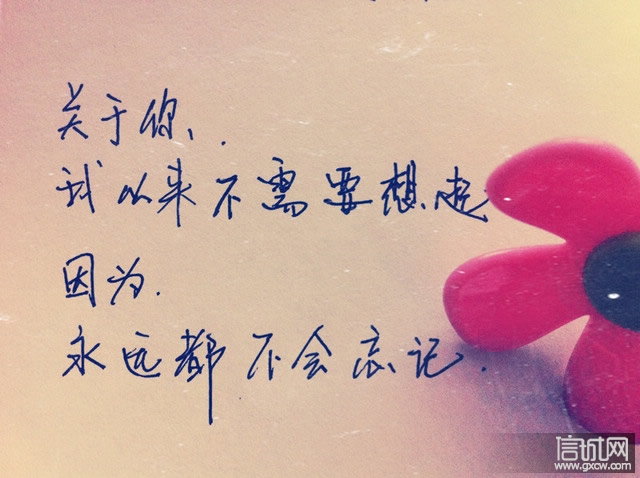 关于你、.
我从来不需要想起
因为.
永远都不会忘记.
信城网
www.gxcw.com